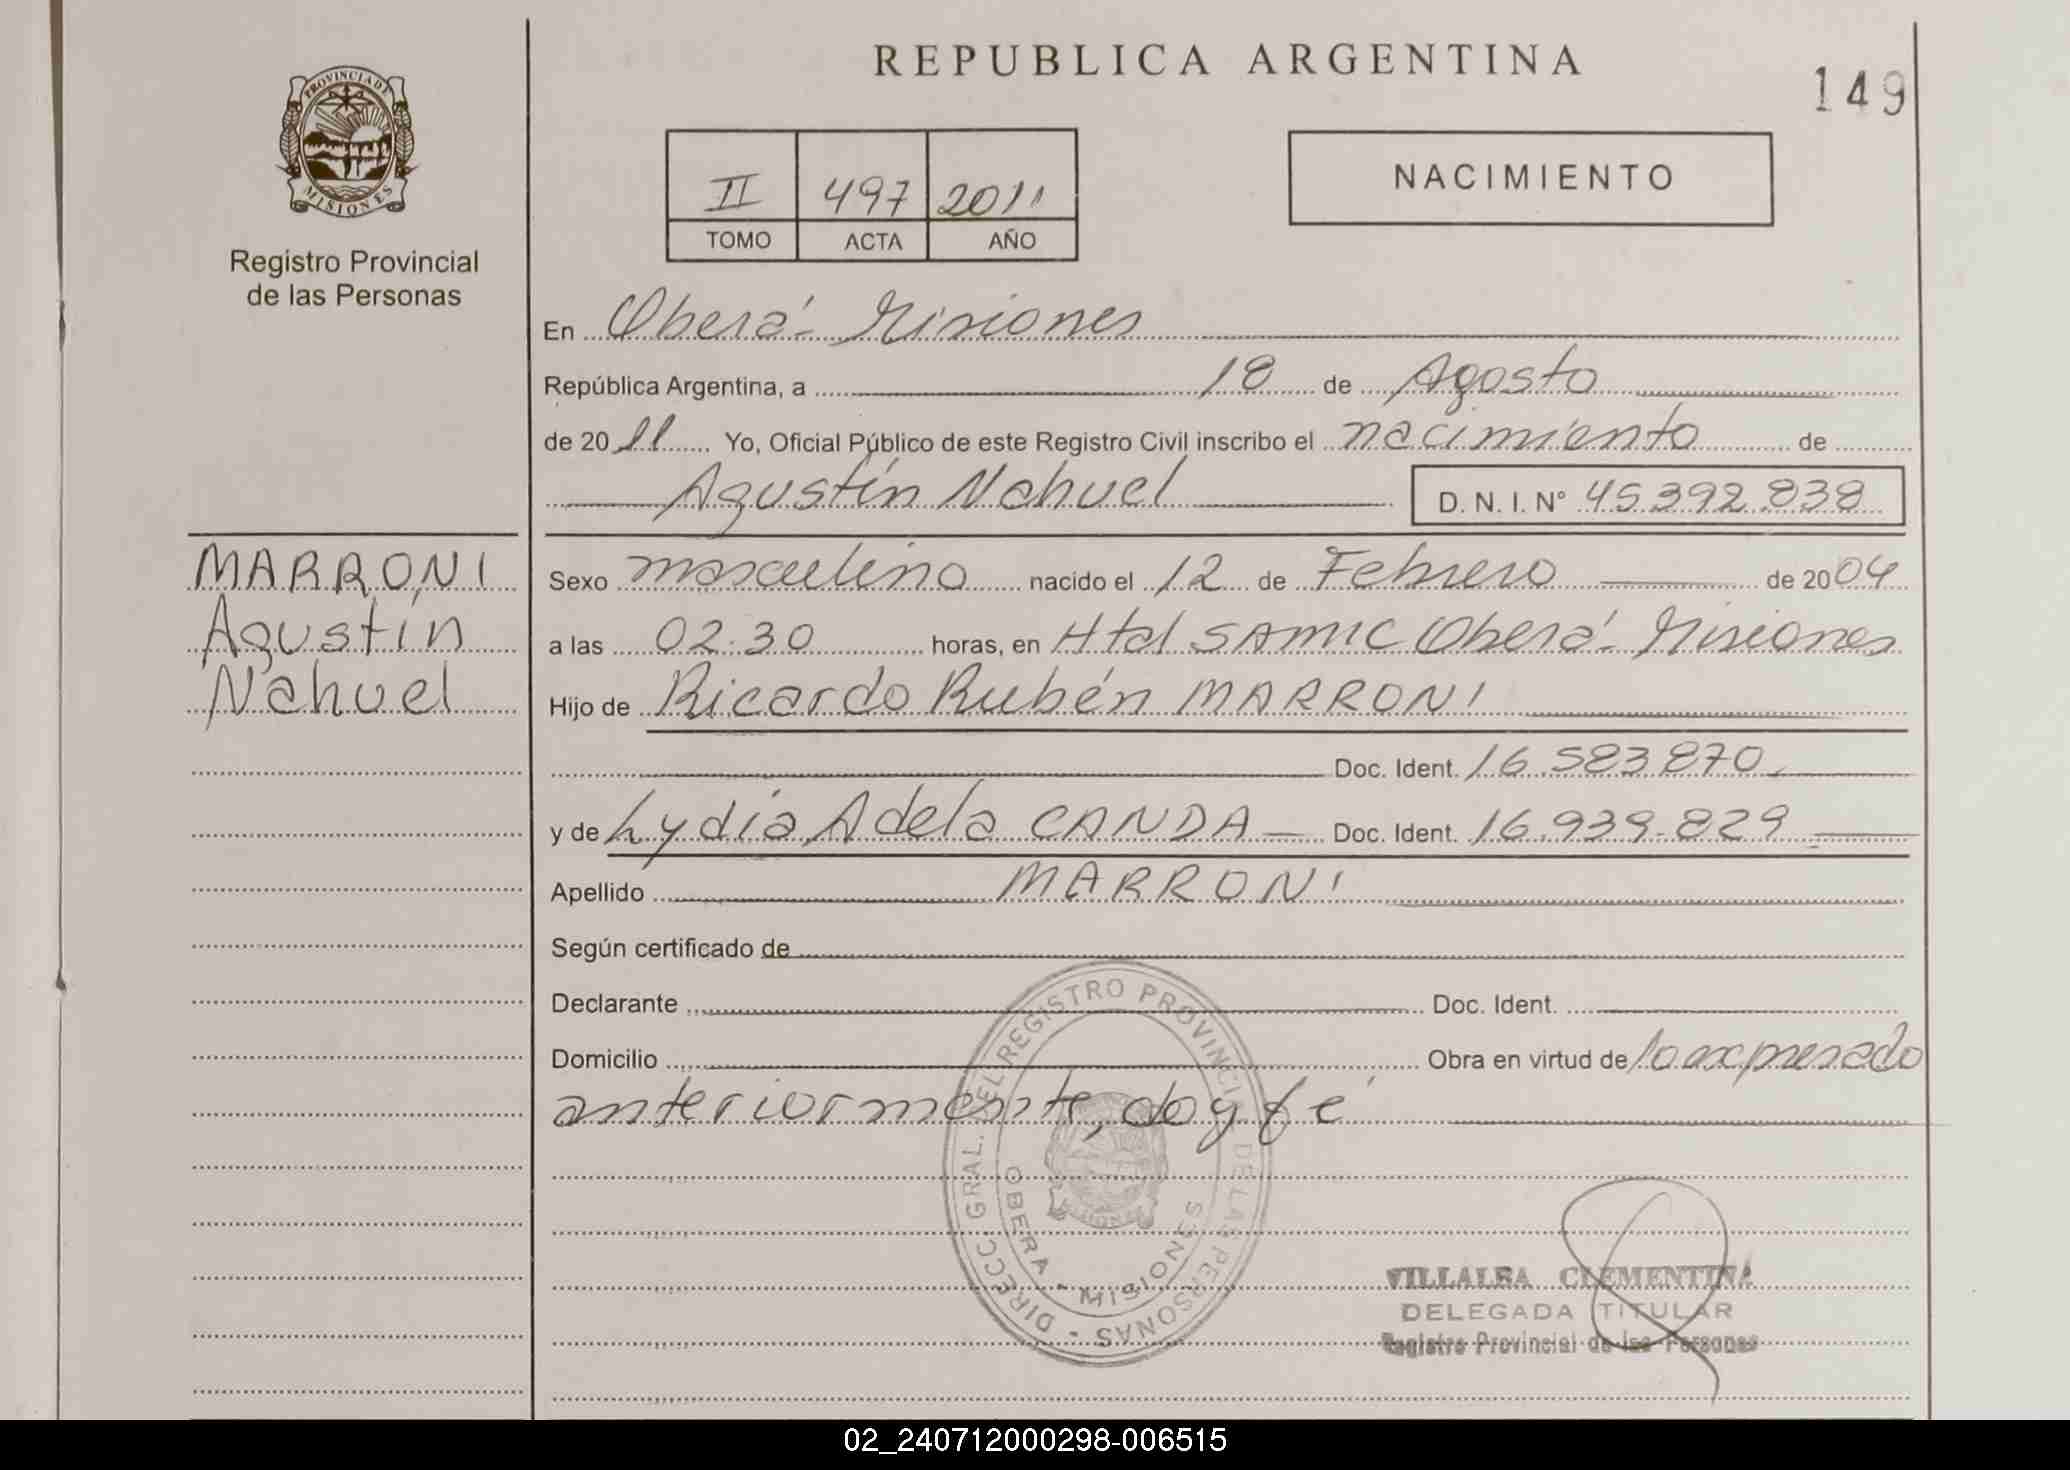 REPUBLICA ARGENTINA
149
PROVINCIA DE
MISIONES
Registro Provincial
de las Personas
II 497 2011
TOMO ACTA AÑO
NACIMIENTO
En Oberá - Misiones
República Argentina, a 18 de Agosto
de 2011 Yo, Oficial Público de este Registro Civil inscribo el nacimiento de
Agustín Nahuel D. N. I. N° 45.392.838
MARRONI
Agustín
Nahuel
Sexo masculino nacido el 12 de Febrero de 2004
a las 02.30 horas, en Htal SAMIC Oberá - Misiones
Hijo de Ricardo Rubén MARRONI
Doc. Ident. 16.583.870
y de Lydia Adela CANDA Doc. Ident. 16.939.829
Apellido MARRONI
Según certificado de
Declarante Doc. Ident.
Domicilio Obra en virtud de lo expresado
anteriormente, doy fé
DIRECC. GRAL. DEL REGISTRO PROVINCIAL DE LAS PERSONAS -
OBERA - MISIONES
VILLALBA CLEMENTINA
DELEGADA TITULAR
Registro Provincial de las Personas
02_240712000298-006515